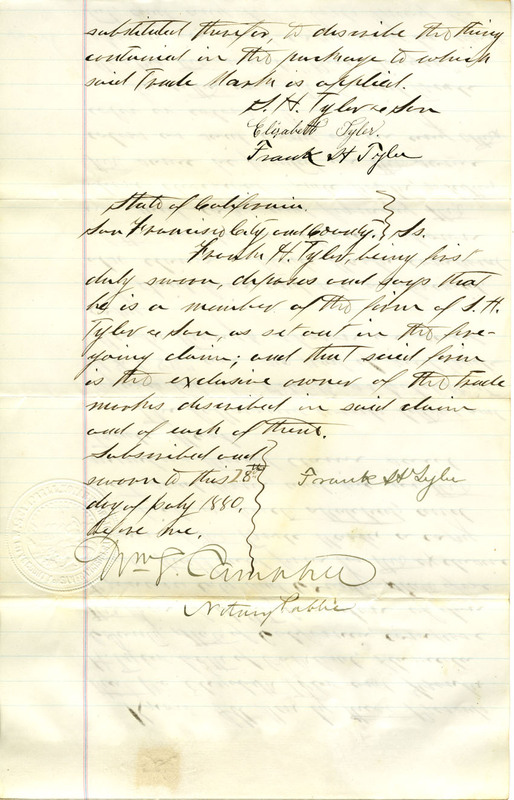 substituted therefor, to describe the thing
contained in the package to which
said Trade Mark is applied.
S. H. Tyler & Son
Elizabeth Tyler.
Frank H Tyler
State of California.
San Francisco City and County. } Ss.
Frank H. Tyler, being first
duly sworn, deposes and says that
he is a member of the firm of S. H.
Tyler & Son, as set out in the fore-
going claim; and that said firm
is the exclusive owner of the trade
marks described in said claim
and of each of them.
Subscribed and
sworn to this 28th
Frank H Tyler
day of July 1880.
before me.
Wm J. Campbell
Notary Public